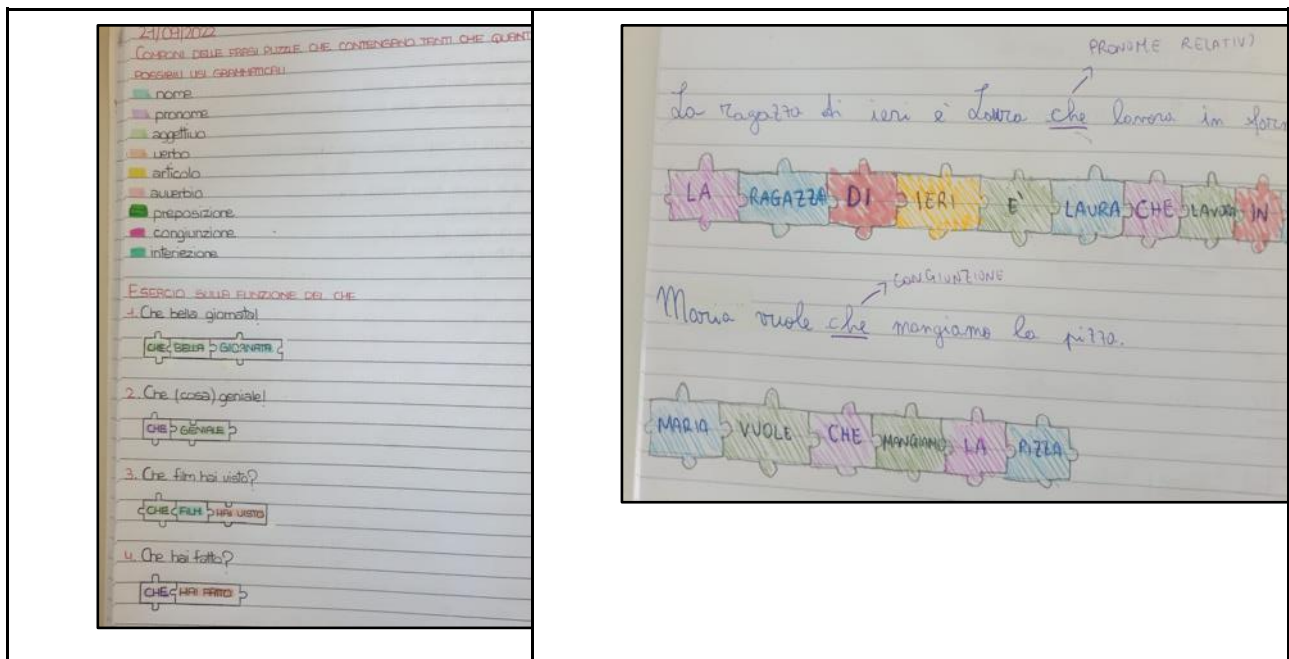 21/09/2022
COMPONI DELLE FRASI PUZZLE CHE CONTENGANO TANTI CHE QUANT
POSSIBILI USI GRAMMATICALI
nome
pronome
aggettivo
verbo
articolo
avverbio
preposizione
congiunzione
interiezione
ESERCIO SULLA FUNZIONE DEL CHE
1. Che bella giornata!
CHE BELLA GIORNATA
2. Che (cosa) geniale!
CHE GENIALE
3. Che film hai visto?
CHE FILM HAI VISTO
4. Che hai fatto?
CHE HAI FATTO
PRONOME RELATIVO
La ragazza di ieri è Laura che lavora in forn
LA RAGAZZA DI IERI E' LAURA CHE LAVORA IN
CONGIUNZIONE
Maria vuole che mangiamo la pizza.
MARIA VUOLE CHE MANGIAMO LA PIZZA